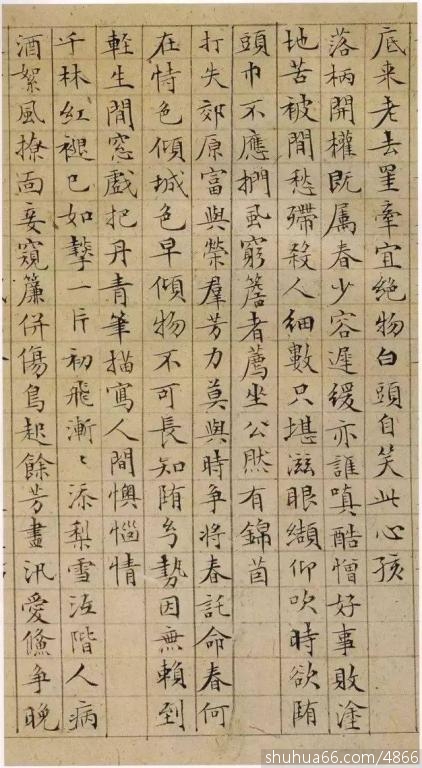 底来老去罣牵宜絶物白頭自笑此心孩
落柄開權既属春少容遲緩亦誰嗔酷憎好事敗塗
地苦被閒愁殢殺人細數只堪滋眼纈仰吹時欲陏
頭巾不應捫風窮簷者薦坐公然有錦茵
打失郊原富與榮羣芳力莫與時争將春託命春何
在恃色傾城色早傾物不可長知陏兮勢因無頼到
輕生閒窓戲把丹青筆描寫人間懊惱情
千林紅褪已如摯一片初飛漸〻添梨雪冱階人病
酒絮風撩面妾窺簾併傷鳥起餘芳盡汎愛鯈争晚
shuhua66.com/4866